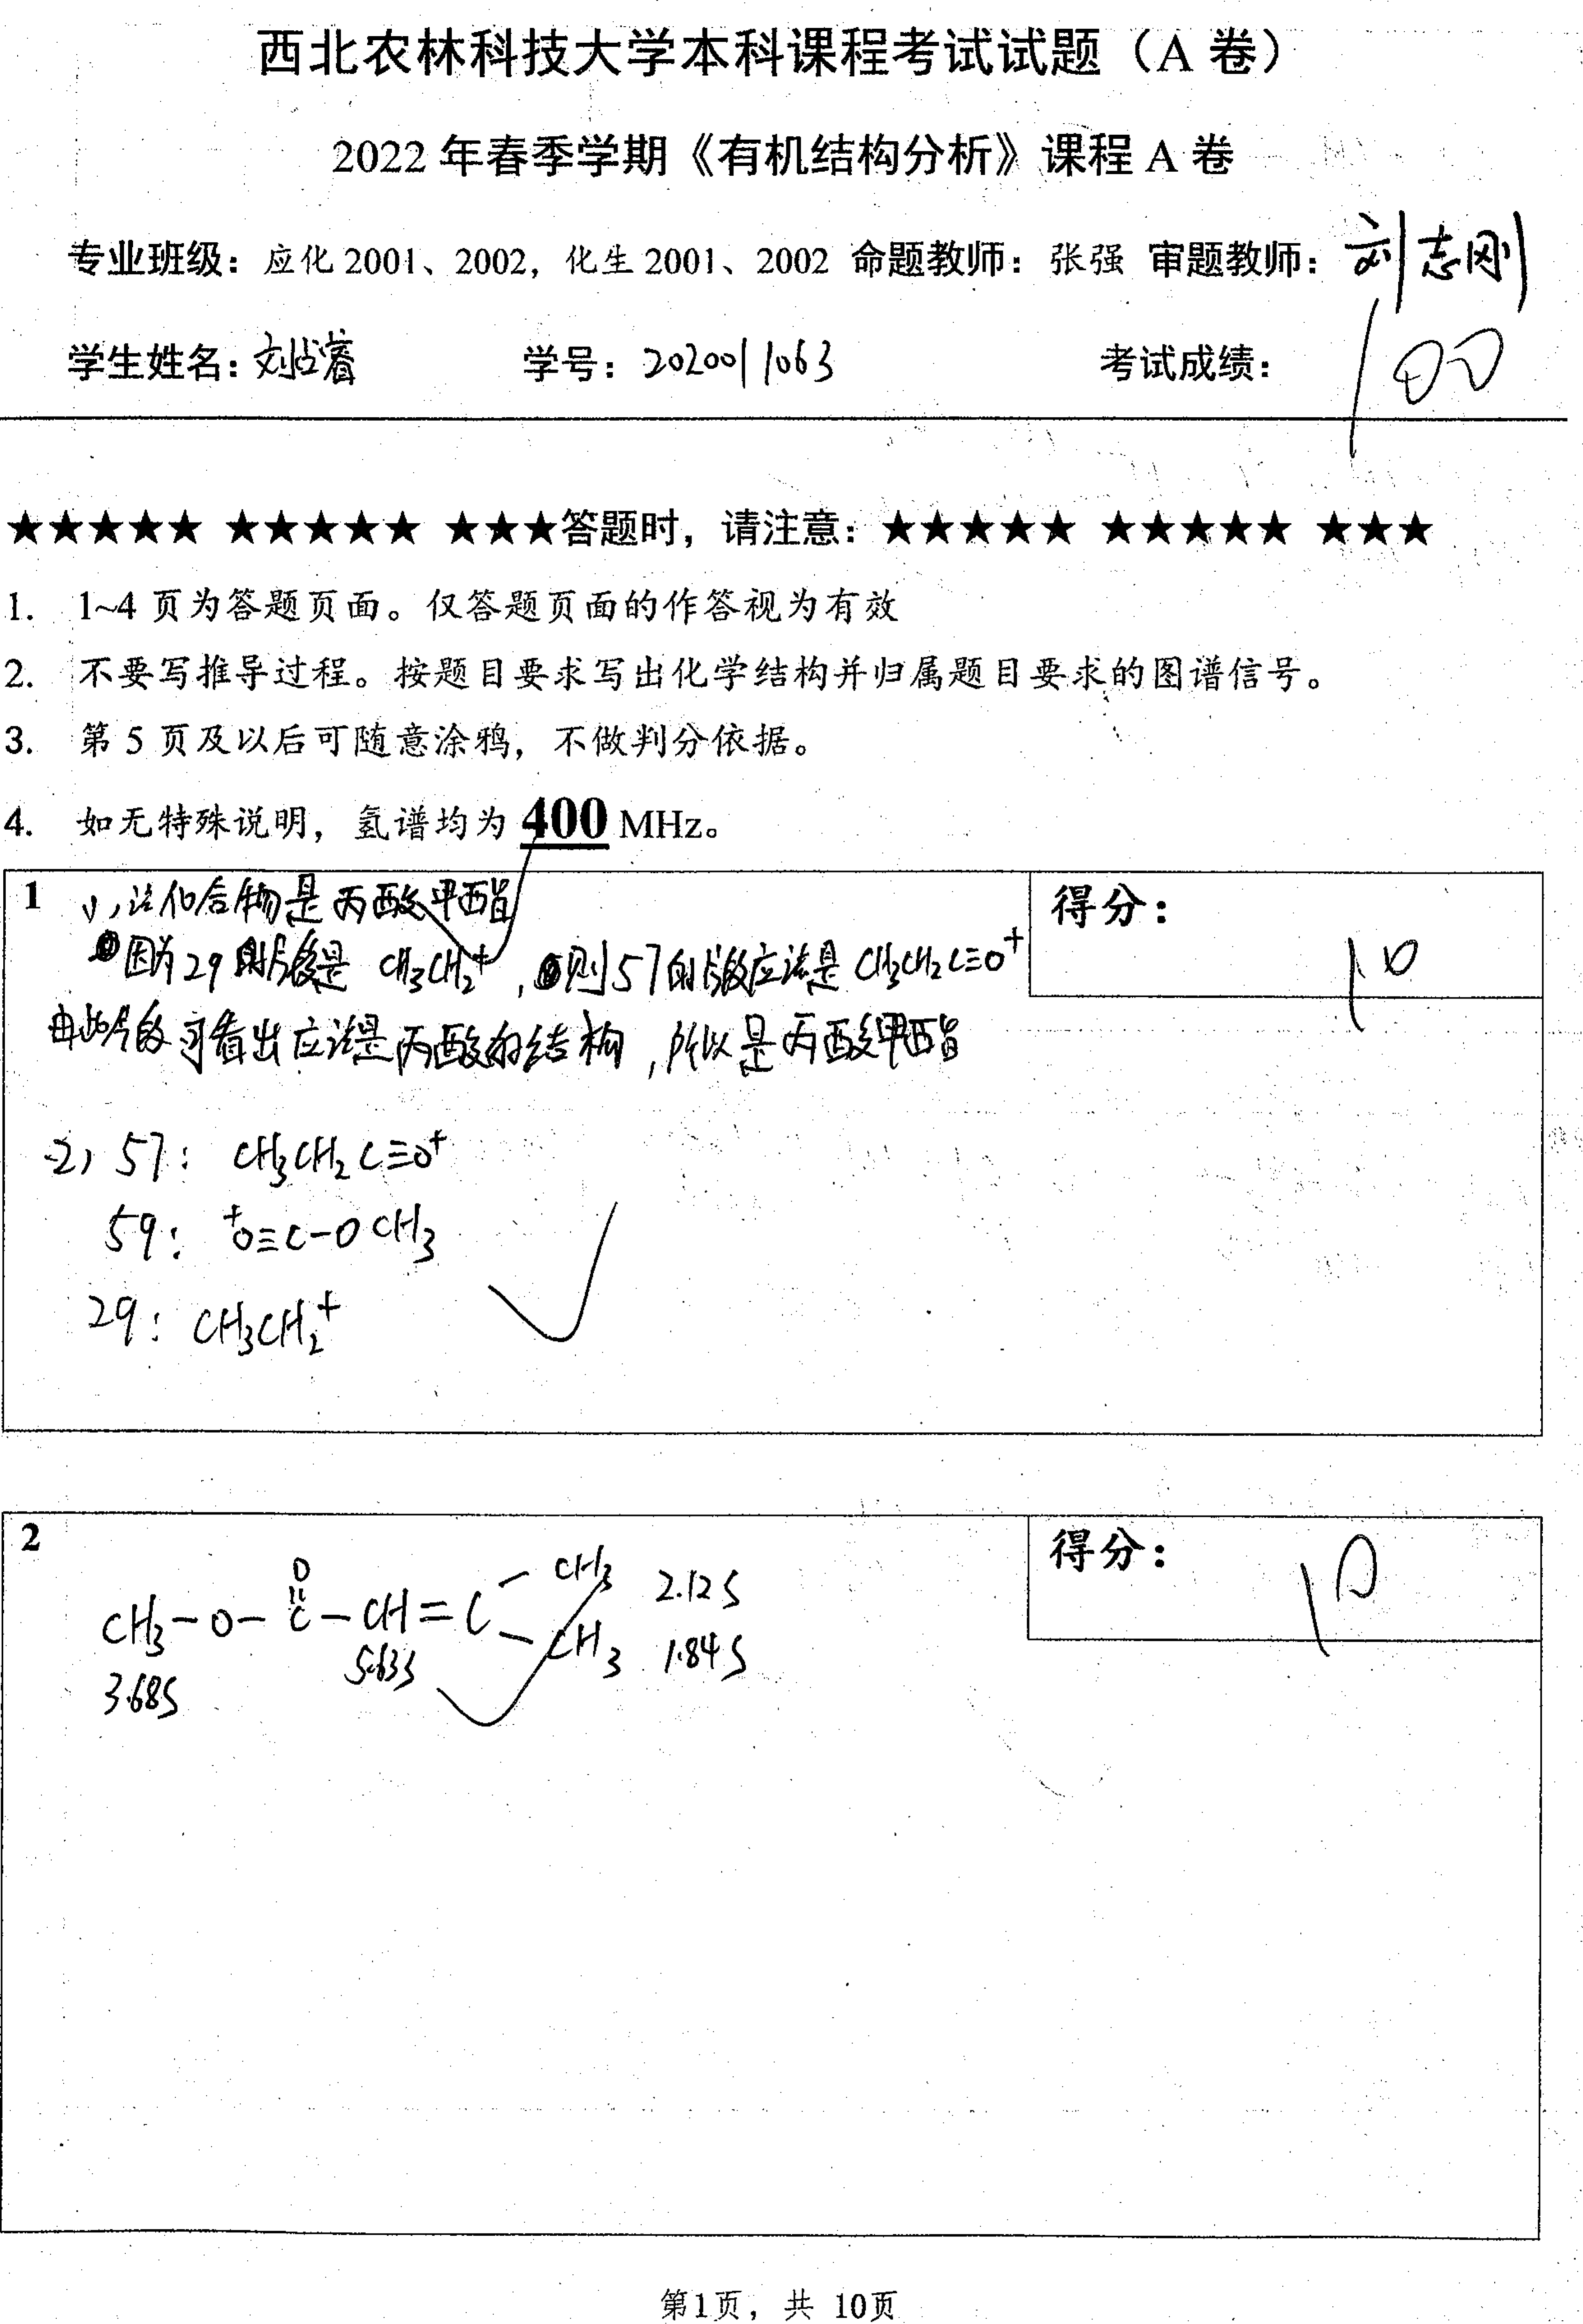 西北农林科技大学本科课程考试试题（A 卷）
2022 年春季学期《有机结构分析》课程 A 卷
专业班级：应化 2001、2002，化生 2001、2002 命题教师：张强 审题教师：刘志刚
学生姓名：刘占睿 学号：2020011063 考试成绩：100
★★★★★ ★★★★★ ★★★答题时，请注意：★★★★★ ★★★★★ ★★★
1. 1~4 页为答题页面。仅答题页面的作答视为有效
2. 不要写推导过程。按题目要求写出化学结构并归属题目要求的图谱信号。
3. 第 5 页及以后可随意涂鸦，不做判分依据。
4. 如无特殊说明，氢谱均为 400 MHz。
1 1)，该化合物是丙酸甲酯
得分：10
因为29的片段是 CH₃CH₂⁺，则57的片段应该是 CH₃CH₂C≡O⁺
由此片段可看出应该是丙酸的结构，所以是丙酸甲酯
2) 57： CH₃CH₂C≡O⁺
59： ⁺O≡C-OCH₃
29： CH₃CH₂⁺
2
得分：10
O
CH₃ 2.12 s
CH₃-O-C-CH=C
CH₃ 1.84 s
5.63 s
3.68 s
第1页，共 10页